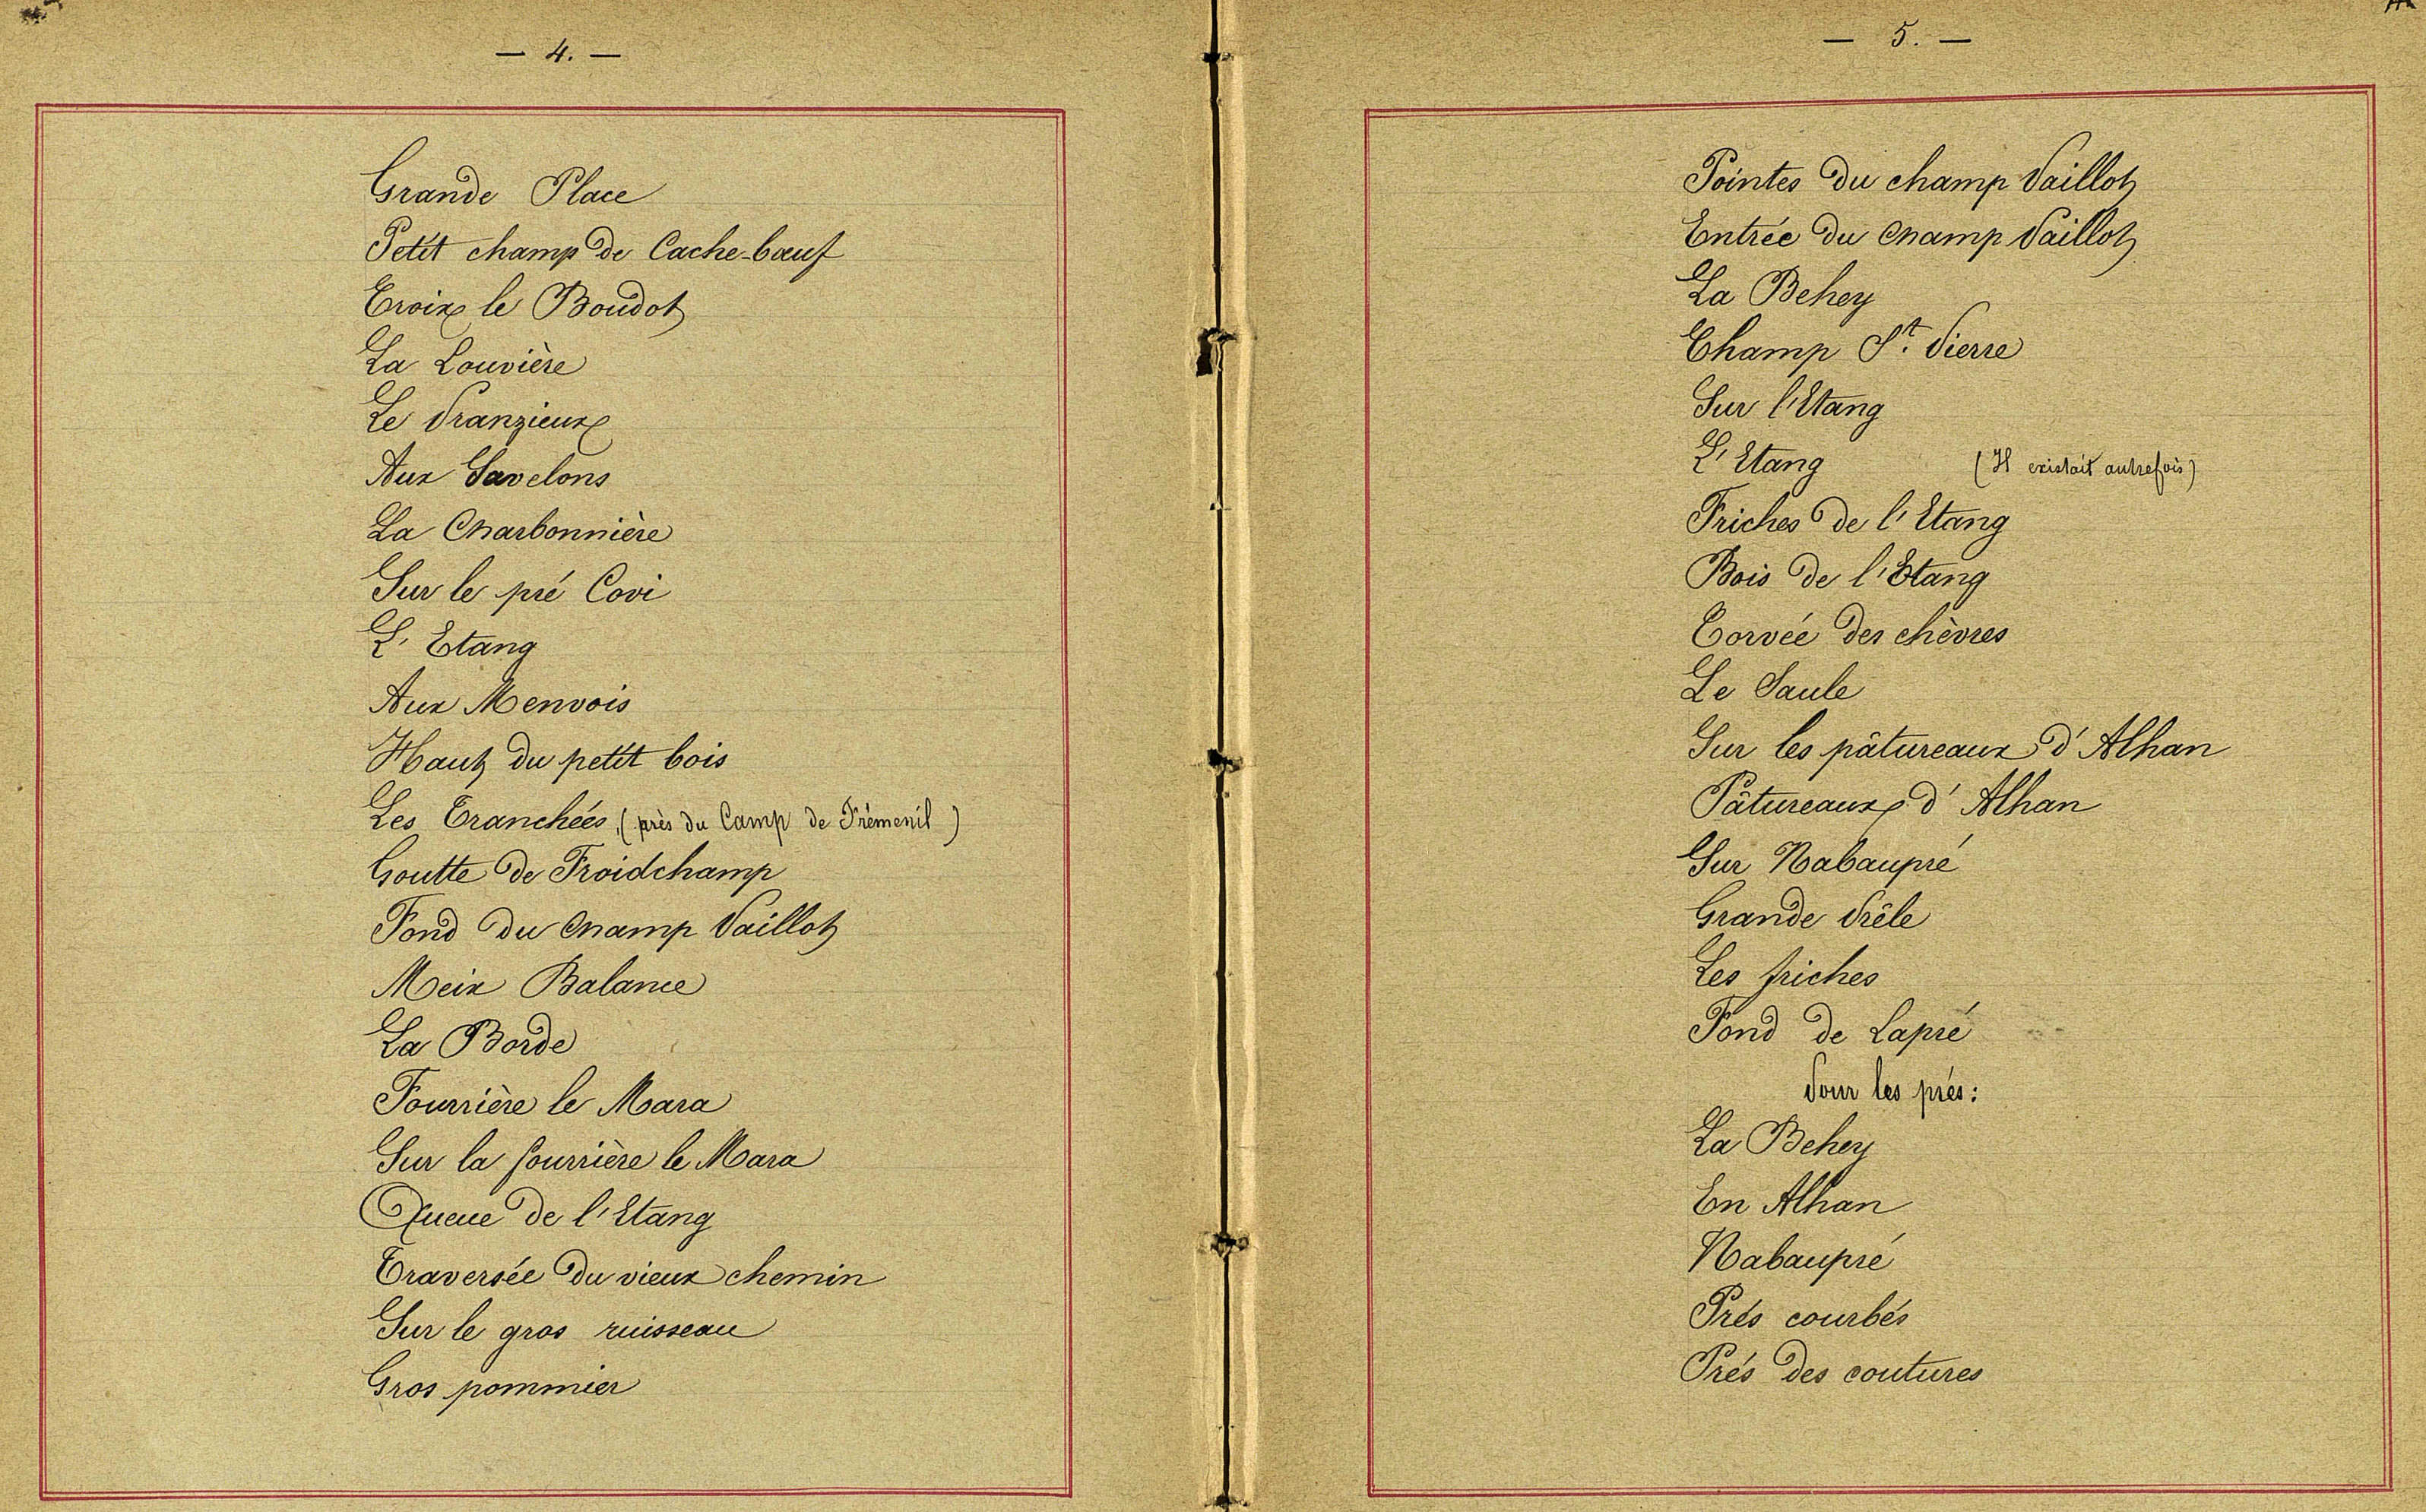 — 4. —
Grande Place
Petit champ de Cache-bœuf
Croix le Boudot
La Louvière
Le Pranzieux
Aux Savelons
La Charbonnière
Sur le pré Covi
L'Etang
Aux Menvois
Haut du petit bois
Les Tranchées (près du Camp de Fréménil)
Goutte de Froidchamp
Fond du champ Vaillot
Meix Balance
La Borde
Fourrière le Mara
Sur la fourrière le Mara
Queue de l'Etang
Traversée du vieux chemin
Sur le gros ruisseau
Gros pommier
— 5. —
Pointes du champ Vaillot
Entrée du champ Vaillot
La Behey
Champ St. Pierre
Sur l'Etang
L'Etang (Il existait autrefois)
Friches de l'Etang
Bois de l'Etang
Corvée des chèvres
Le Saule
Sur les pâtureaux d'Alhan
Pâtureaux d'Alhan
Sur Nabaupré
Grande Prêle
Les friches
Fond de Lapré
Pour les prés:
La Behey
En Alhan
Nabaupré
Prés courbés
Prés des coutures